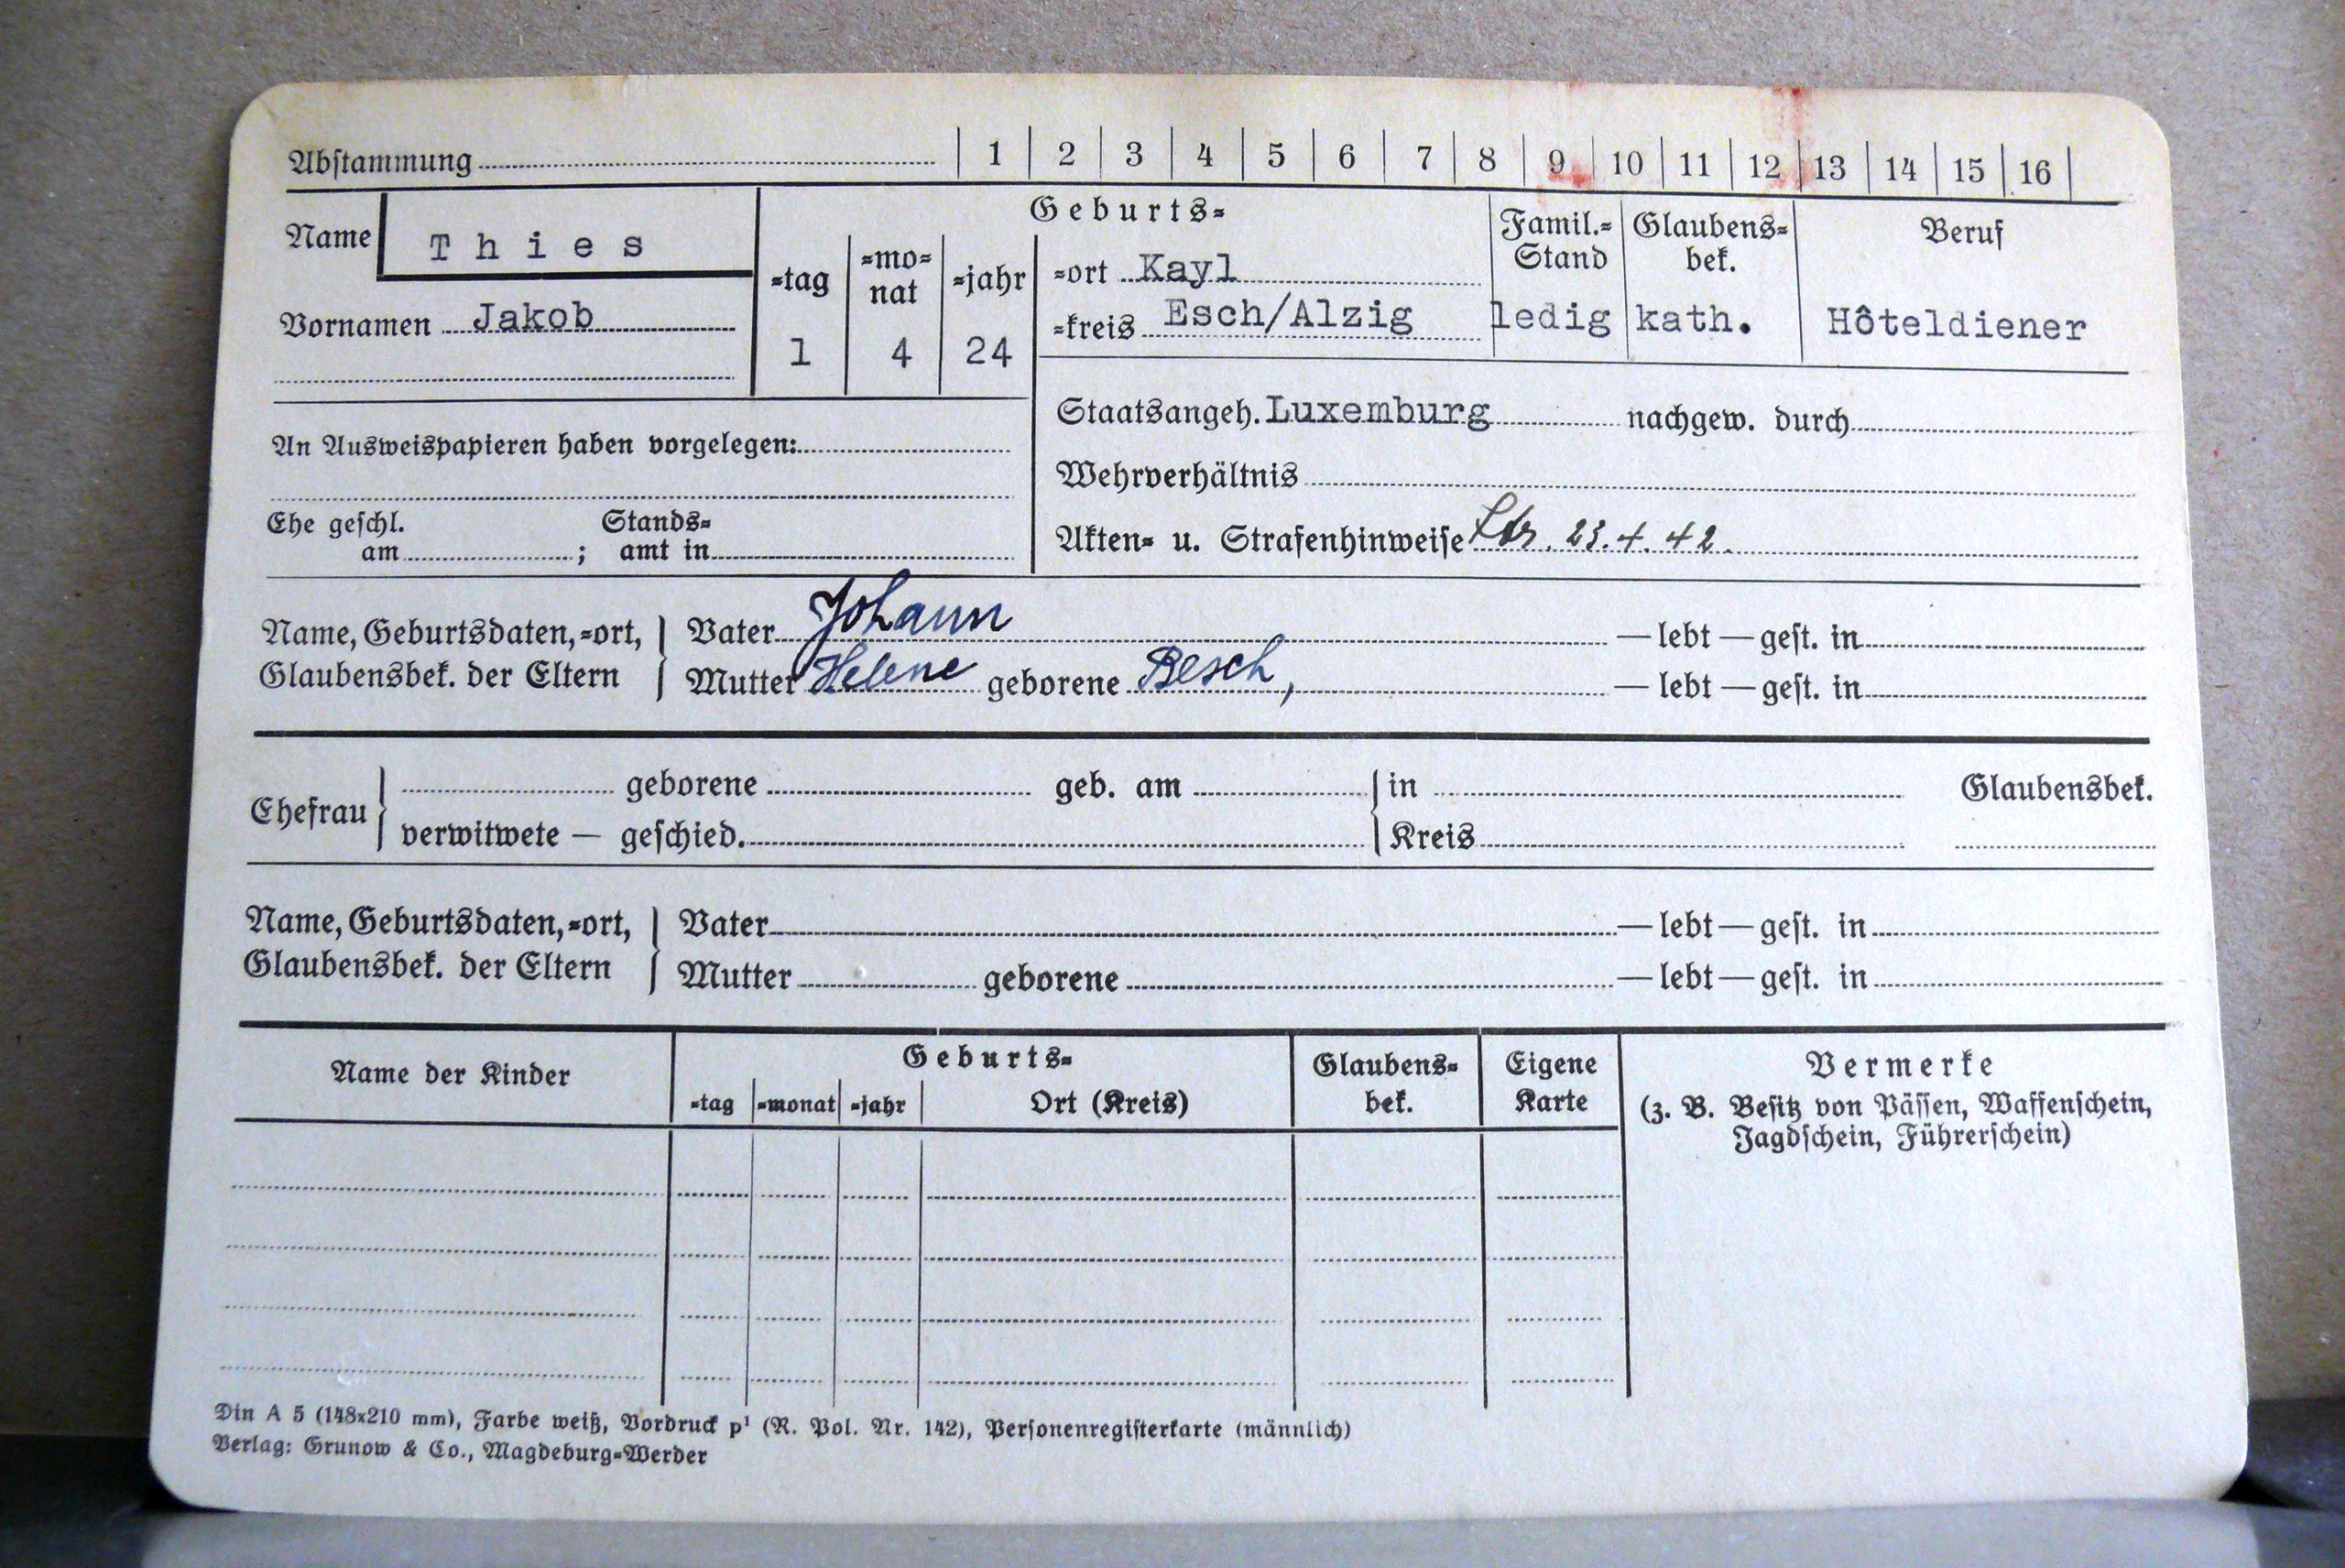 Abstammung 1 2 3 4 5 6 7 8 9 10 11 12 13 14 15 16
Name Thies
Vornamen Jakob
Geburts=
=tag =mo=nat =jahr
1 4 24
=ort Kayl
=kreis Esch/Alzig
Famil.=Stand
ledig
Glaubens=bek.
kath.
Beruf
Hôteldiener
An Ausweispapieren haben vorgelegen:
Ehe geschl. Stands=
am ; amt in
Staatsangeh. Luxemburg nachgew. durch
Wehrverhältnis
Akten= u. Strafenhinweise 23.4.42.
Name, Geburtsdaten, =ort, Vater Johann — lebt — gest. in
Glaubensbek. der Eltern Mutter Helene geborene Besch, — lebt — gest. in
Ehefrau geborene geb. am in Glaubensbek.
verwitwete — geschied. Kreis
Name, Geburtsdaten, =ort, Vater — lebt — gest. in
Glaubensbek. der Eltern Mutter geborene — lebt — gest. in
Name der Kinder
Geburts=
=tag =monat =jahr Ort (Kreis)
Glaubens=
bek.
Eigene
Karte
Vermerke
(z. B. Besitz von Pässen, Waffenschein,
Jagdschein, Führerschein)
Din A 5 (148x210 mm), Farbe weiß, Vordruck p¹ (R. Pol. Nr. 142), Personenregisterkarte (männlich)
Verlag: Grunow & Co., Magdeburg=Werder